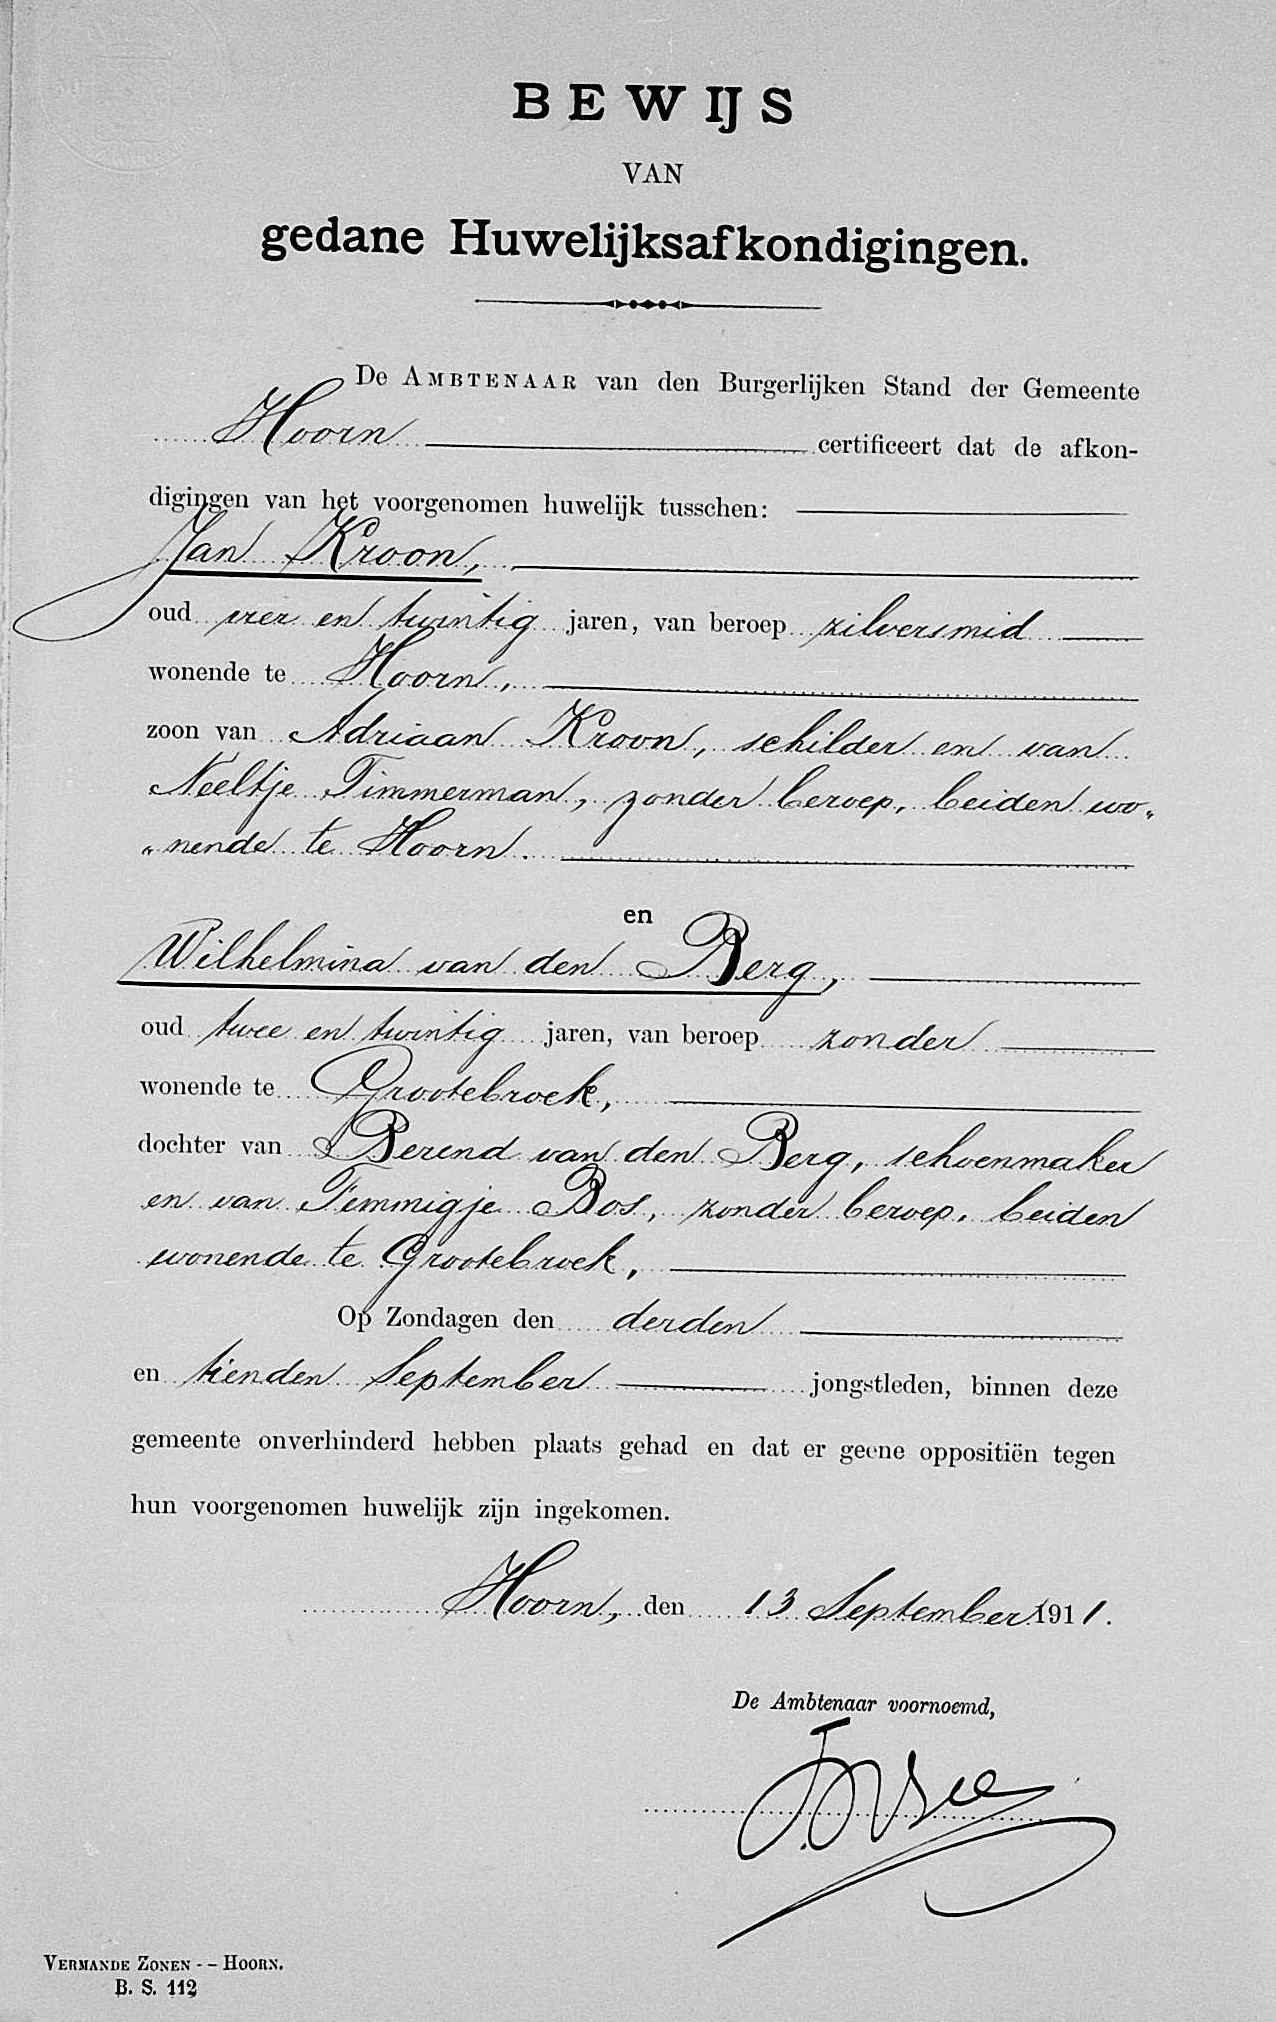 BEWIJS
VAN
gedane Huwelijksafkondigingen.
De AMBTENAAR van den Burgerlijken Stand der Gemeente
Hoorn certificeert dat de afkon-
digingen van het voorgenomen huwelijk tusschen:
Jan Kroon,
oud vier en twintig jaren, van beroep zilversmid
wonende te Hoorn,
zoon van Adriaan Kroon, schilder en van
Neeltje Timmerman, zonder beroep, beiden wo„
„nende te Hoorn.
en
Wilhelmina van den Berg,
oud twee en twintig jaren, van beroep zonder
wonende te Grootebroek,
dochter van Berend van den Berg, schoenmaker
en van Femmigje Bos, zonder beroep, beiden
wonende te Grootebroek,
Op Zondagen den derden
en tienden September jongstleden, binnen deze
gemeente onverhinderd hebben plaats gehad en dat er geene oppositiën tegen
hun voorgenomen huwelijk zijn ingekomen.
Hoorn, den 13 September 1911.
De Ambtenaar voornoemd,
VERMANDE ZONEN - - HOORN.
B. S. 112